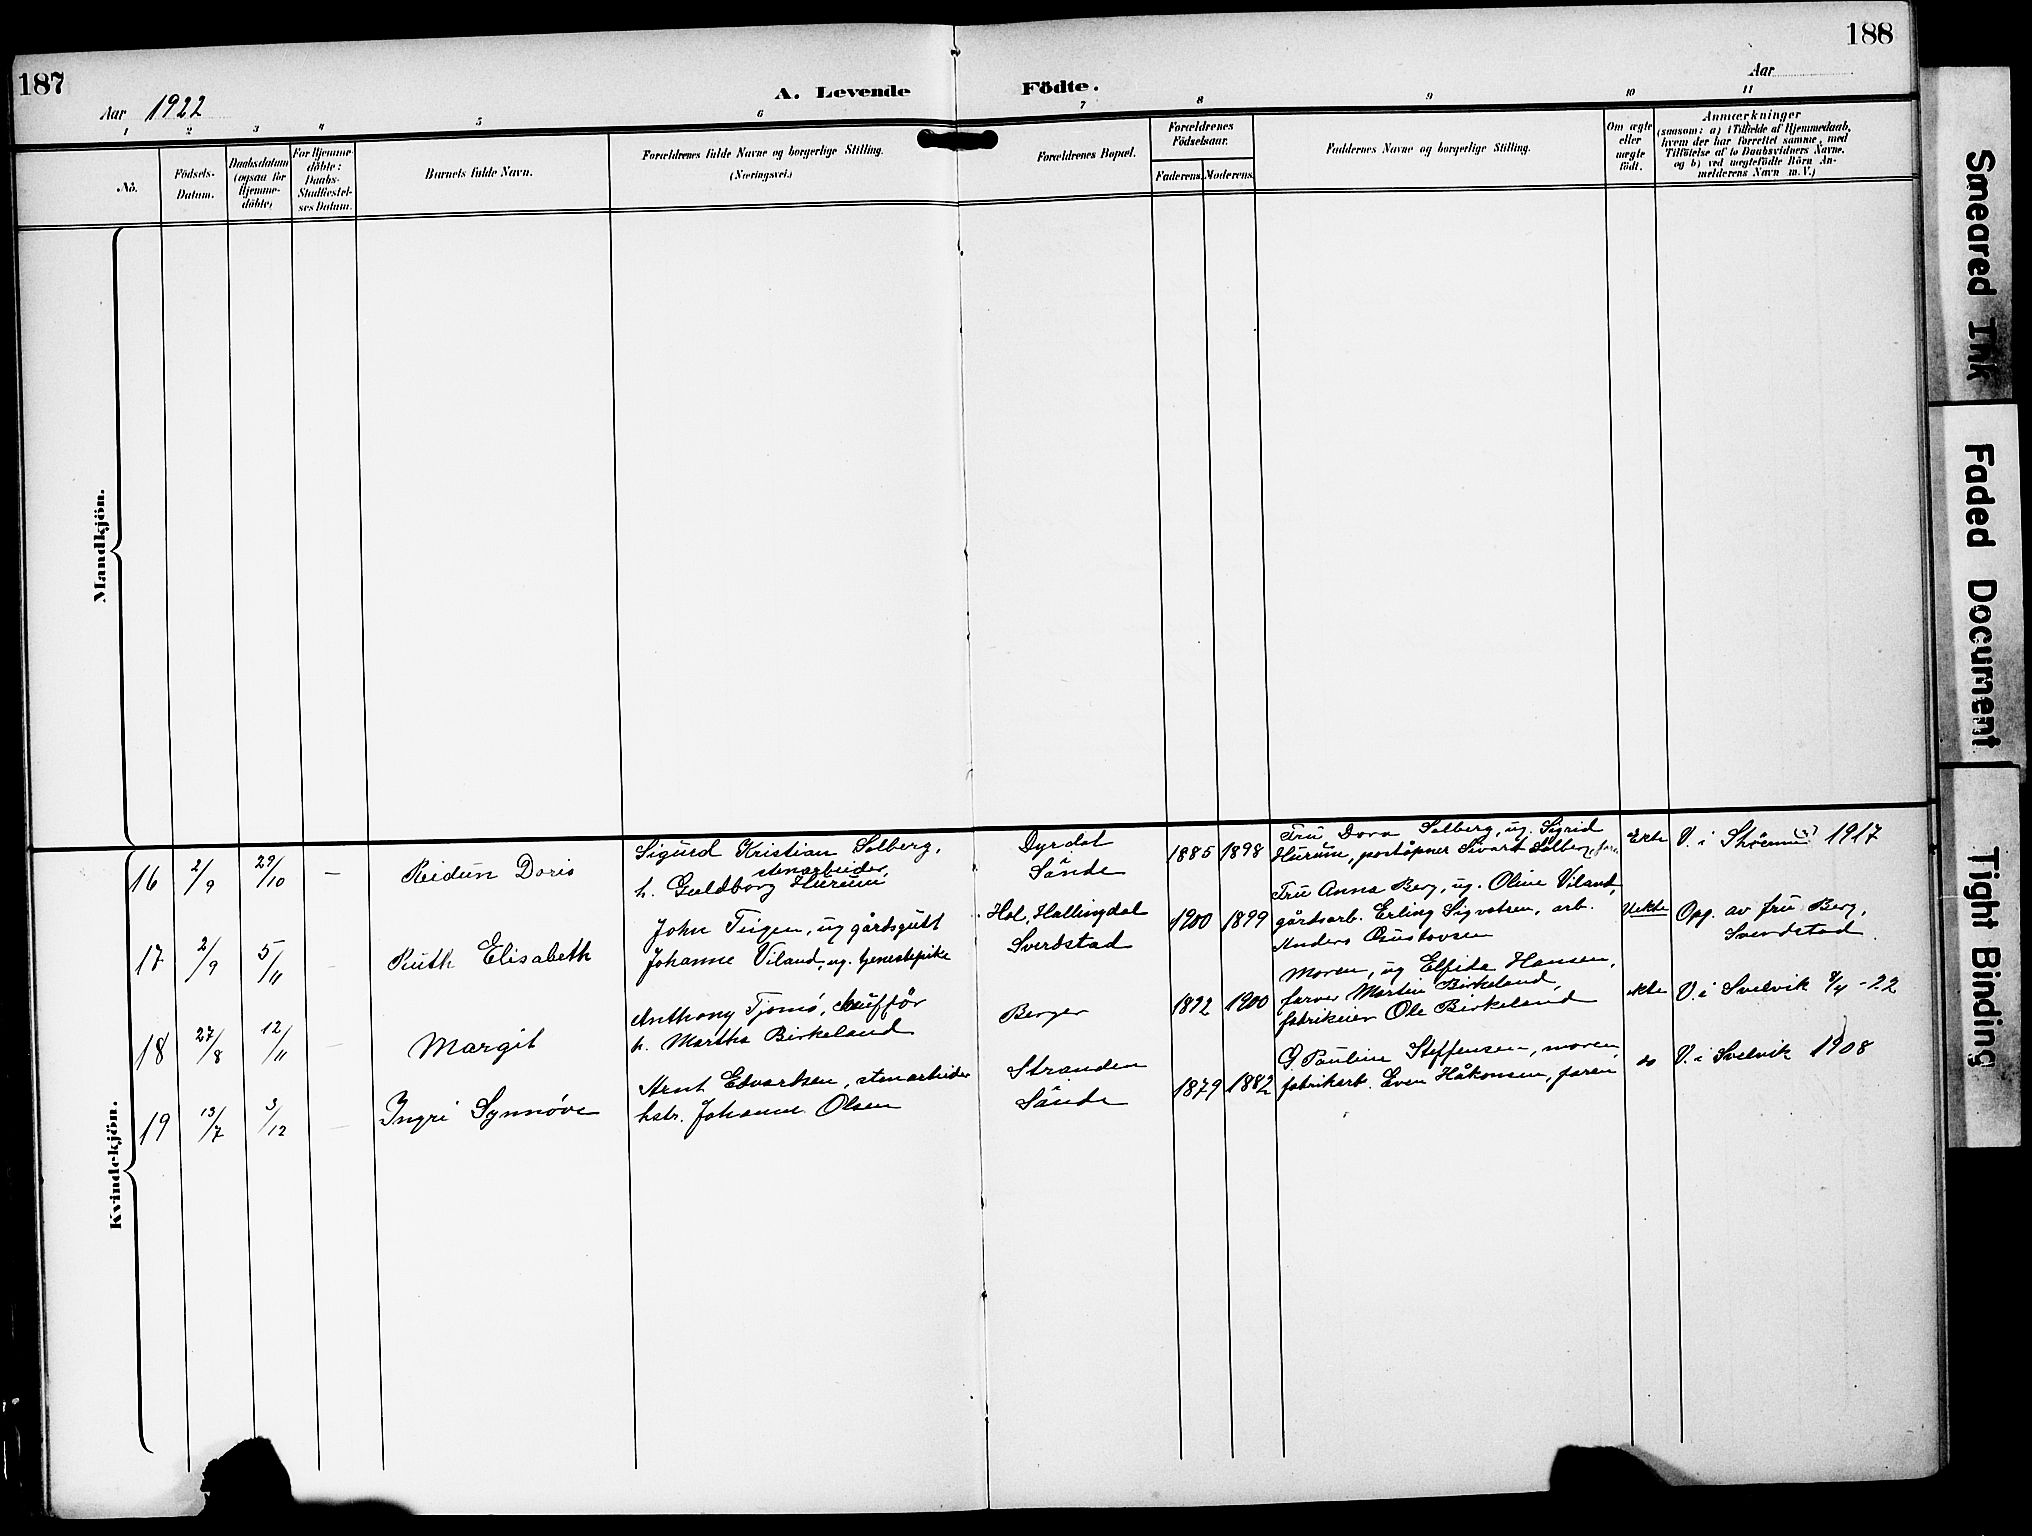 187
188
Aar 1922
A. Levende Födte.
Aar
1 2 3 4 5 6 7 8 9 10 11
No.
Födsels-
Datum.
Daabsdatum
(ogsaa for
Hjemme-
döbte)
For Hjemme-
döbte:
Daabs-
Stadfæstel-
ses Datum.
Barnets fulde Navn.
Forældrenes fulde Navne og borgerlige Stilling.
(Næringsvei.)
Forældrenes Bopæl.
Forældrenes
Födselsaar.
Faderens. Moderens.
Faddernes Navne og borgerlige Stilling.
Om ægte
eller
uægte
födt.
Anmærkninger
(saasom: a) i Tilfælde af Hjemmedaab,
hvem der har forrettet samme, med
Tilföielse af to Daabsvidners Navne.
og b) ved uægtefödte Börn An-
melderens Navn m. V.)
Mandkjön.
Kvindekjön.
16 2/9 29/10 — Reidun Doris
Sigurd Kristian Solberg,
stenarbeider,
h. Guldborg Hurum
Dyrdal
Sande
1885 1898
Fru Dora Solberg, ug. Sigrid
Hurum, poståpner Sivart Solberg,
Ekte
V. i 1917
17 2/9 5/11 — Ruth Elisabeth
John Teigen, ug gårdsgutt
Johanne Viland, ug. tjenestepike
Hol, Hallingdal
Sverdstad
1900 1899
Fru Anna Berg, ug. Oline Viland,
gårdsarb. Erling Sigvatsen, arb.
Anders Gustavsen
Uekte
Opg. av fru Berg,
Sverdstad
18 27/8 12/11 — Margit
Anthony Tjomø, chauffør
h. Martha Birkeland
Berger
1892 1900
Moren, ug Elfida Hansen,
farver Martin Birkeland,
fabrikeier Ole Birkeland
ekte
V. i Svelvik -22
19 13/7 3/12 — Ingri Synnøve
Arnt Edvardsen, stenarbeider
hstr. Johanne Olsen
Stranden
Sande
1879 1882
G. Pauline Steffensen, moren,
fabrikarb. Even Håkonsen, faren
do
V. i Svelvik 1908
Smeared Ink
Faded Document
Tight Binding